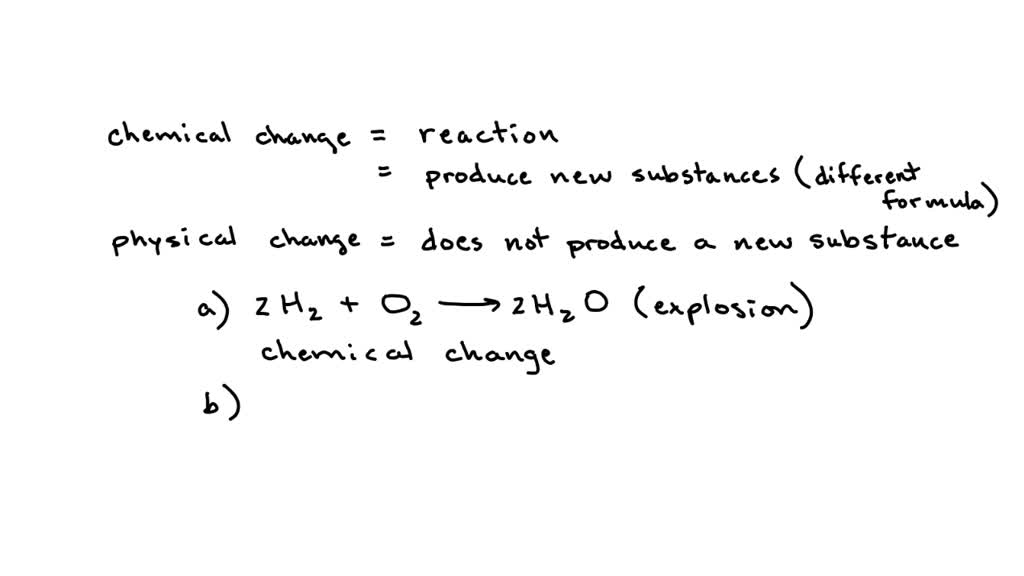 chemical change = reaction
= produce new substances (different formula)
physical change = does not produce a new substance
a) 2H₂ + O₂ ⟶ 2H₂O (explosion)
chemical change
b)